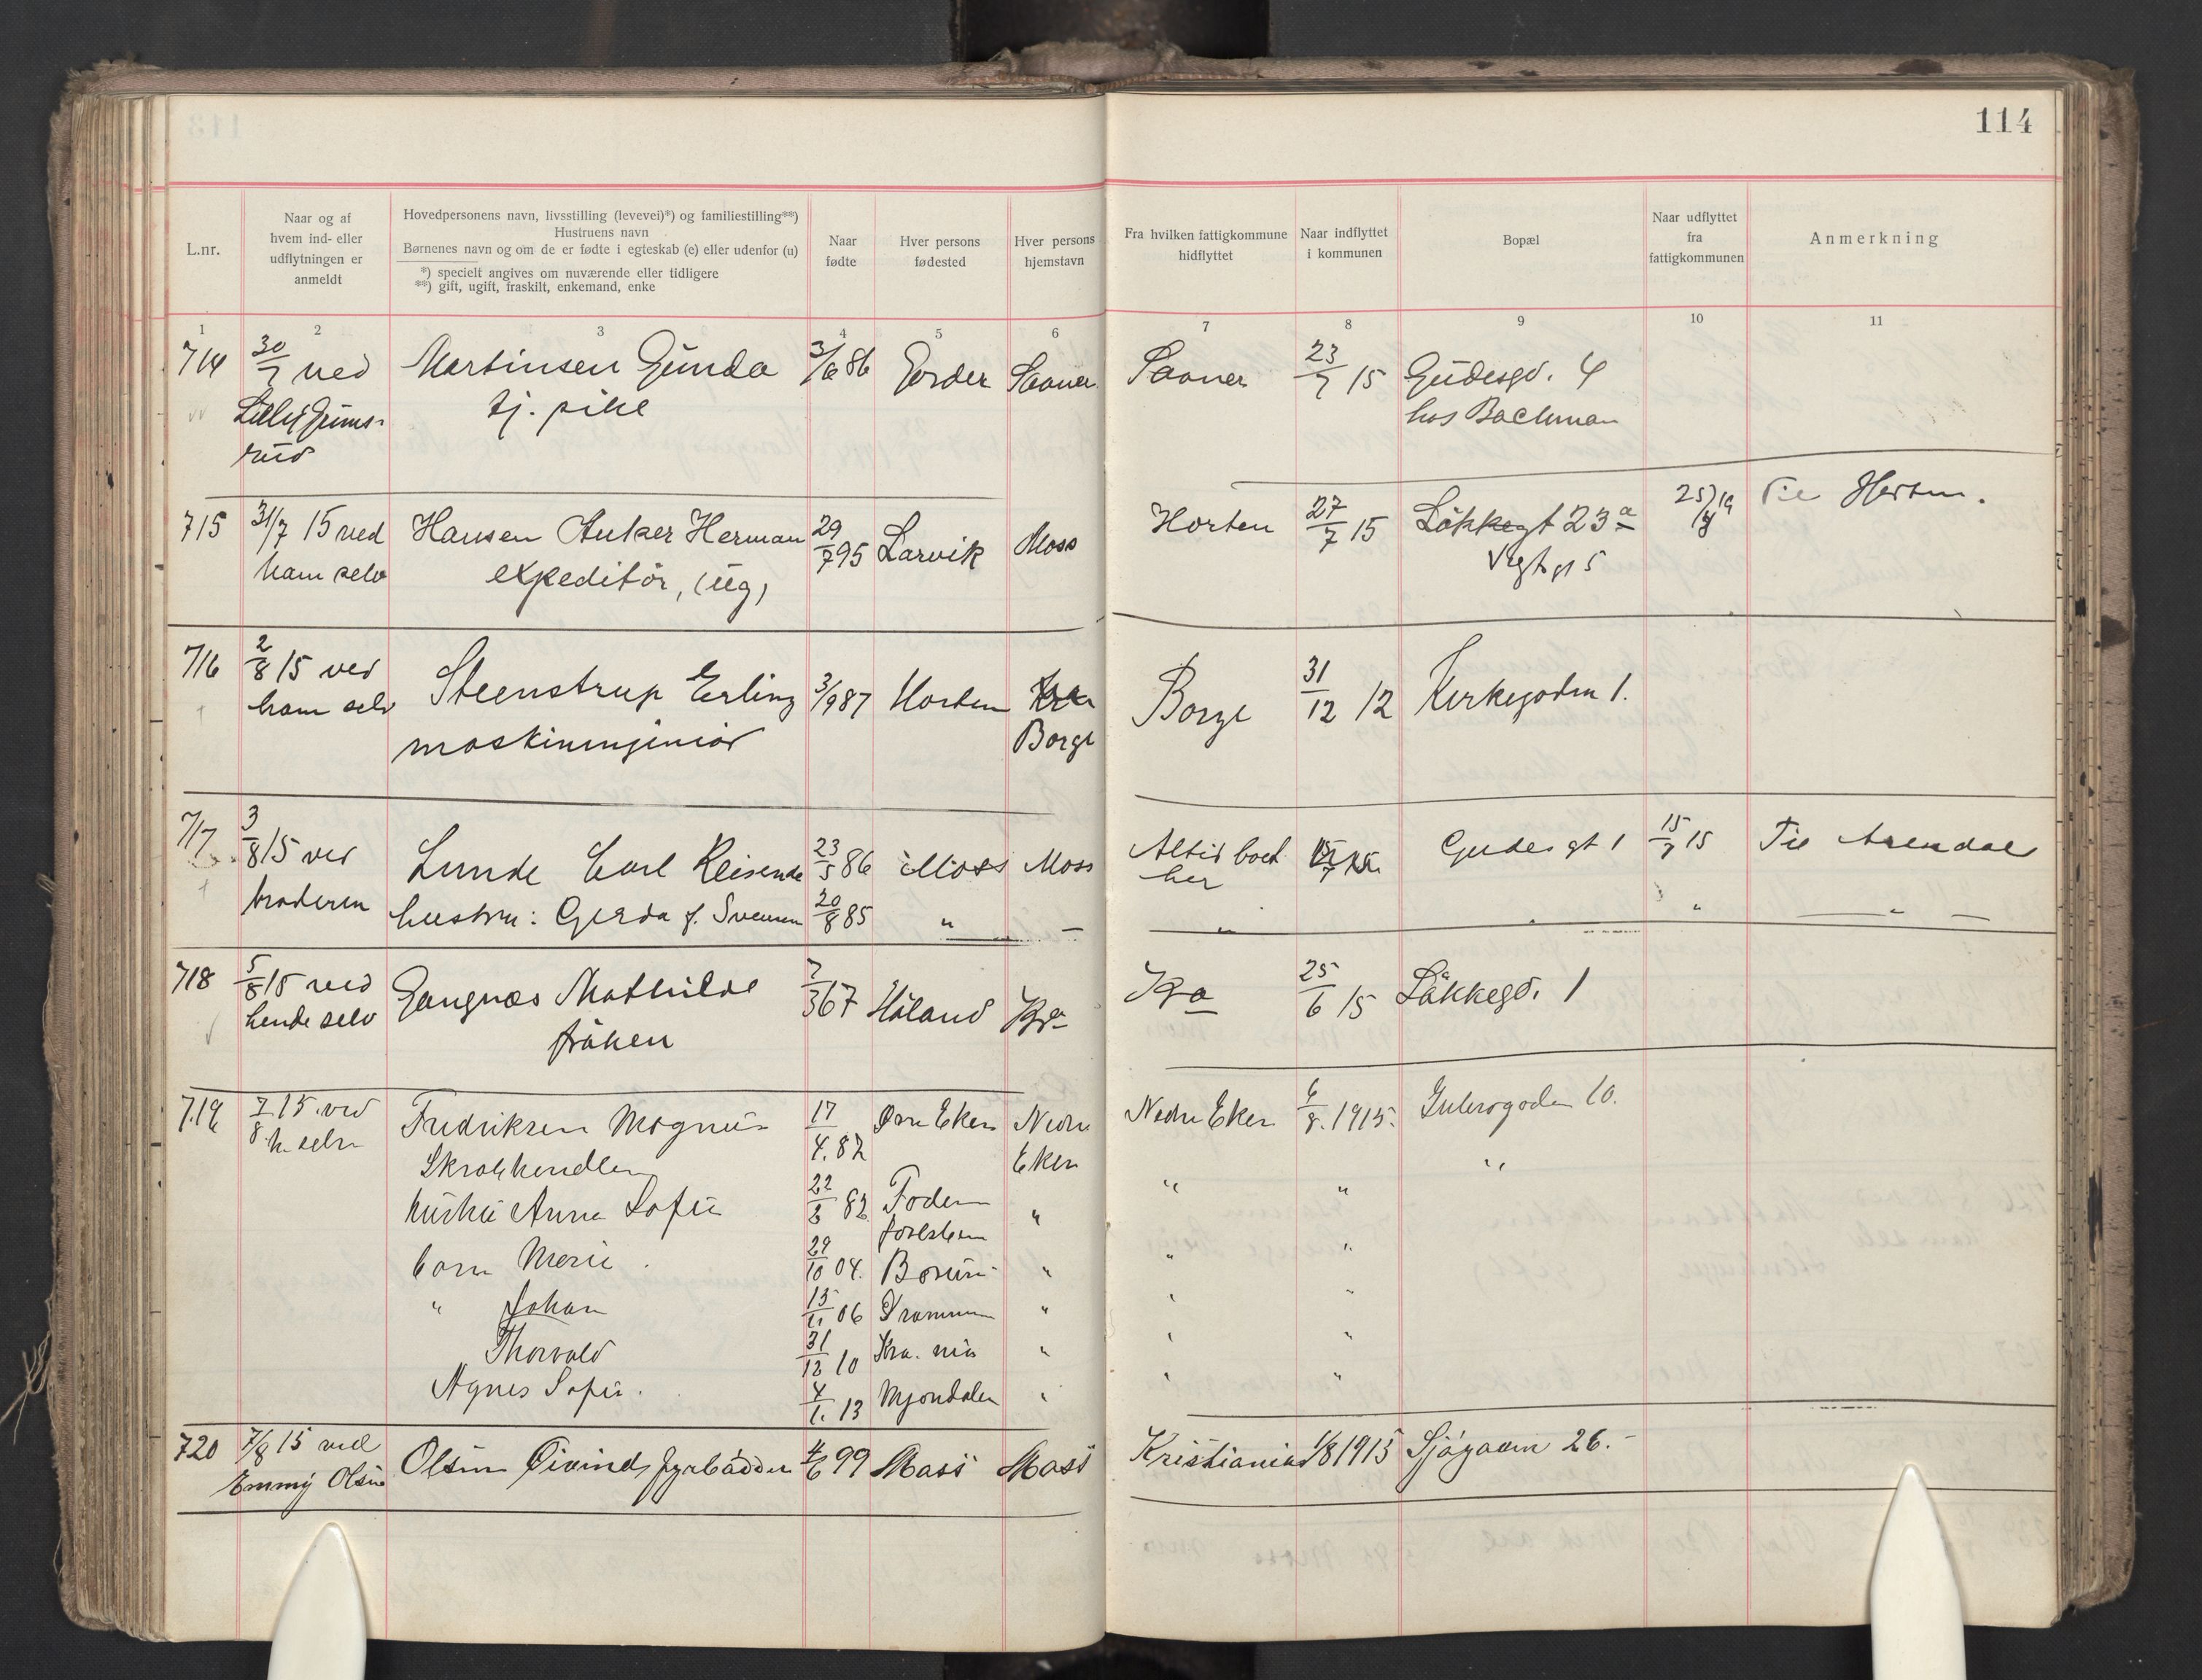 114
L.nr.
Naar og af
hvem ind- eller
udflytningen er
anmeldt
Hovedpersonens navn, livsstilling (levevei)*) og familiestilling**)
Hustruens navn
Børnenes navn og om de er fødte i egteskab (e) eller udenfor (u)
*) specielt angives om nuværende eller tidligere
**) gift, ugift, fraskilt, enkemand, enke
Naar
fødte
Hver persons
fødested
Hver persons
hjemstavn
Fra hvilken fattigkommune
hidflyttet
Naar indflyttet
i kommunen
Bopæl
Naar udflyttet
fra
fattigkommunen
Anmerkning
1 2 3 4 5 6 7 8 9 10 11
714 30/7 ved Martinsen Gunda 3/6 86 Saaner Saaner 23/7 15 Gudesgd. 4
tj. pike hos Bachman
715 31/7 15 ved Hansen Anker Herman 29/7 95 Larvik Moss Horten 27/7 15 Løkkegt 23a Til Horten.
ham selv expeditør, (ug) Vogtsgt 5
716 2/8 15 ved Steenstrup Erling 3/9 87 Horten Borge 31/12 12 Kirkegaden 1.
ham selv maskiningeniør Borge
717 3/8 15 ved Lunde Carl Reisende 23/5 86 Moss Moss Altid boet Gudes gt 1 15/7 15 Til Arendal
her
broderen hustru: Gerda f. Svensen 20/8 85 " " " "
718 5/8 15 ved Gangnæs Mathilde 7/3 67 Høland Kra Kra 25/6 15 Løkkegd. 1
hende selv frøken
719 7/8 15. ved Fredriksen Magnus 17/4. 82 Øvre Eker Nedre Nedre Eker 6/8. 1915. 10.
h. selv Skraphandler Eker "
hustru Anna Sofie 22/8 82 " " "
barn Marie 29/10 04. " " "
" Johan 15/11 06 Drammen " " "
Thorvald 31/12 10 Kra.nia " " "
Agnes Sofie. 4/1. 13 Mjøndalen " " "
720 7/8 15 ved Olsen Øivind fyrbøder 4/6 99 Moss Moss Kristiania 1/8 1915 Sjøgaden 26.
Emmy Olsen